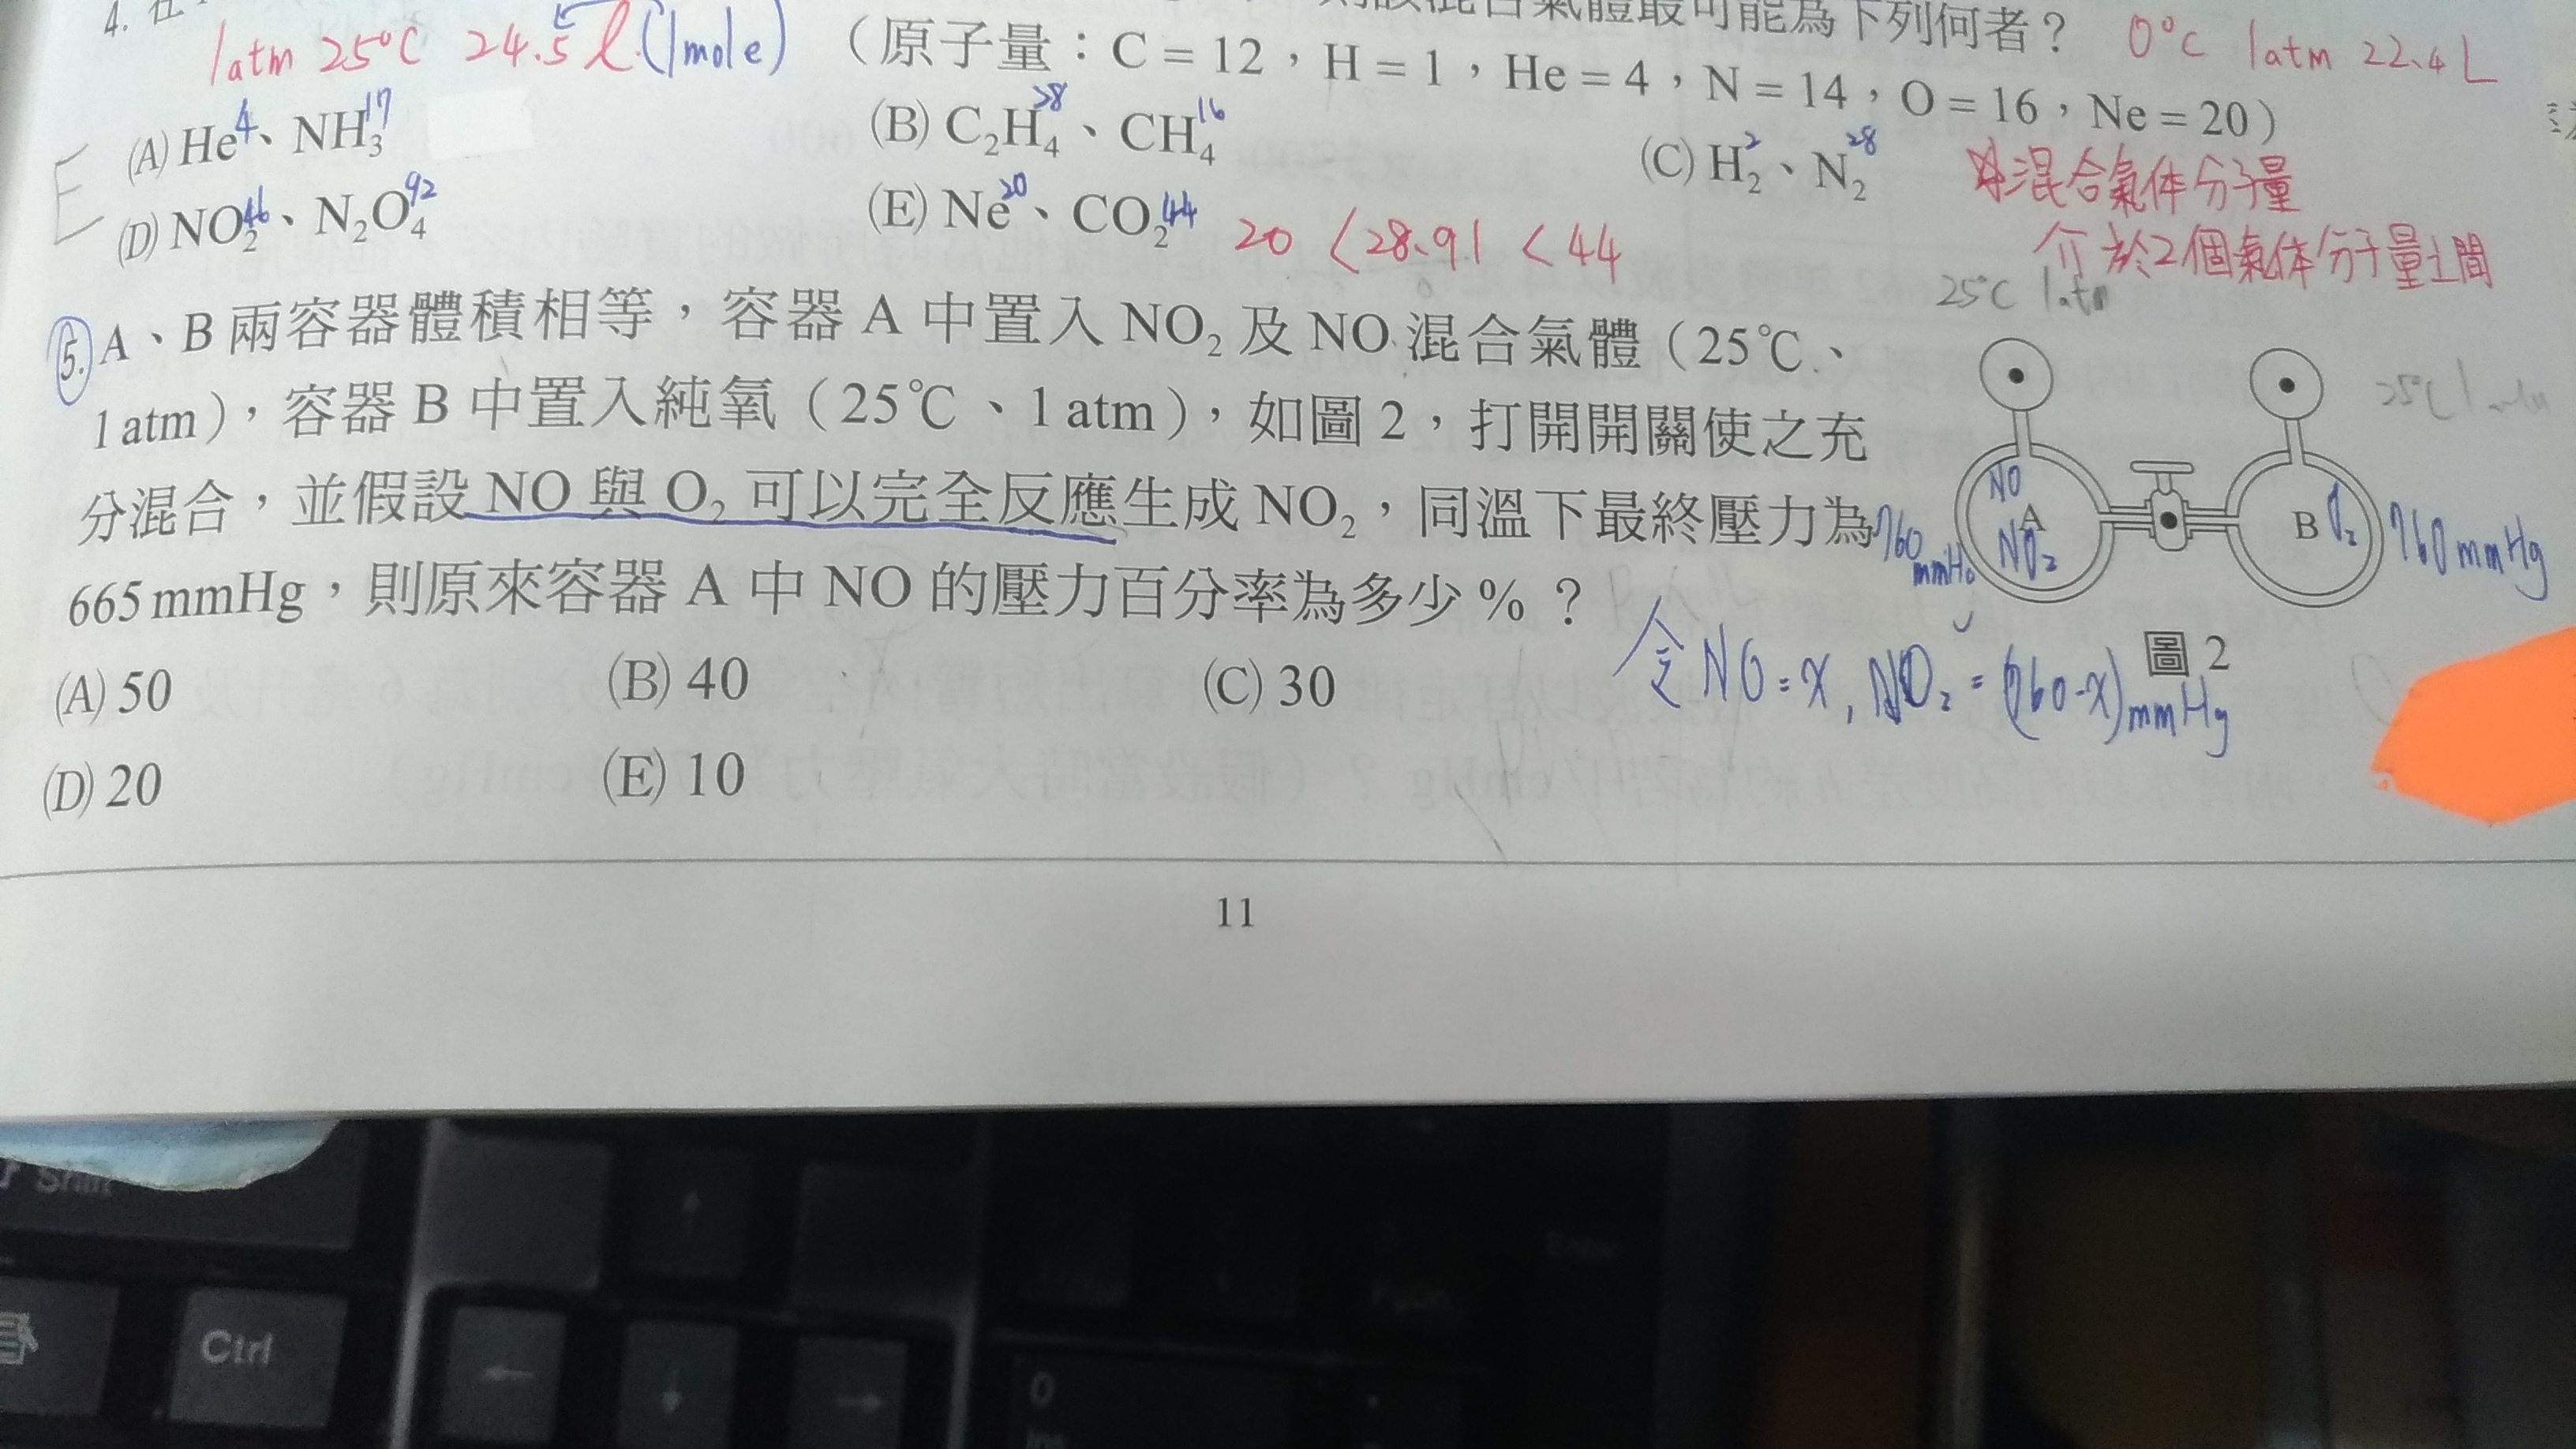 4. 在
則該混合氣體最可能為下列何者？ 0°C 1atm 22.4L
1atm 25°C 24.5ℓ(1mole) （原子量：C = 12，H = 1，He = 4，N = 14，O = 16，Ne = 20）
E
(A) He⁴、NH₃¹⁷ (B) C₂H₄²⁸、CH₄¹⁶ (C) H₂²、N₂²⁸
(D) NO₂⁴⁶、N₂O₄⁹² (E) Ne²⁰、CO₂⁴⁴ 20 < 28.91 < 44
混合氣体分子量
介於2個氣体分子量之間
25°C 1atm
5. A、B 兩容器體積相等，容器 A 中置入 NO₂ 及 NO 混合氣體（25℃、
1 atm），容器 B 中置入純氧（25℃、1 atm），如圖 2，打開開關使之充
分混合，並假設 NO 與 O₂ 可以完全反應生成 NO₂，同溫下最終壓力為
665 mmHg，則原來容器 A 中 NO 的壓力百分率為多少 %？
(A) 50 (B) 40 (C) 30
(D) 20 (E) 10
25°C 1
NO
A
NO₂
B
O₂
760
mmHg
760 mmHg
圖 2
令 NO = x, NO₂ = (760-x) mmHg
11
Shift
Ctrl
↑
← ↓ →
Enter
0
Ins